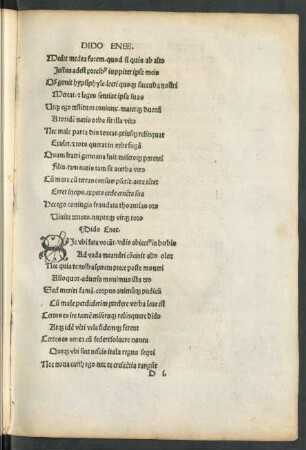 DIDO ENEE.
Medee medea forem. quod si quis ab alto
Iustus adest precibus iuppiter ipse meis
Quod gemit hypsiphyle lecti quoque succuba nostri
Mereat. et leges sentiet ipsa suas
Utque ego destituor coniunx. materque duorum
A totidem natis orba sit illa viro
Nec male parta diu teneat. peiusque relinquat
Exulet. et toto querat in orbe fugam
Quam fratri germana fuit. miseroque parenti
Filia. tam natis tam sit acerba viro
Cum mare cum terras consumpserit. aera temptet
Erret inops. expers cede cruenta sua
Hec ego coniugio fraudata thoantias oro
Vivite devoto. nuptaque virque toro
Dido Enee.
Sic ubi fata vocant. udis abiectus in herbis
Ad vada meandri concinit albus olor
Nec quia te nostra sperem prece posse moveri
Alloquor. adverso movimus ista deo
Sed meriti famam. corpus animumque pudicum
Cum male perdiderim perdere verba leve est
Certus es ire tamen miseramque relinquere dido
Atque idem venti vela fidemque ferent
Certus es enea cum federe solvere naves
Queque ubi sint nescis itala regna sequi
Nec nova carthago nec te crescentia tangunt
D i.